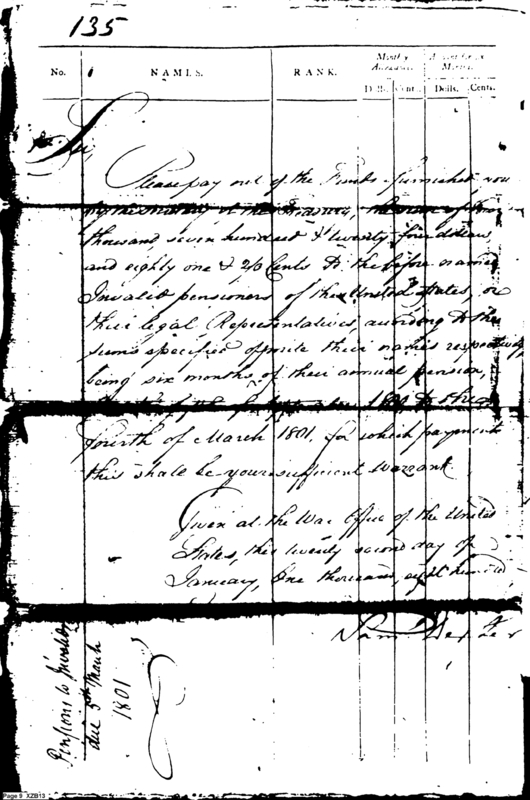 135
No. NAMES. RANK. Monthly Allowance. Dolls. Cents. Dolls. Cents.
Sir,
Please pay out of the Funds furnished you
by the of the Treasury, the sum of
thousand seven hundred & twenty four dollars
and eighty one & 2/0 Cents to the before named
Invalid pensioners of the United States, or
their legal Representatives, according to the
sums specified opposite their names respectively
being six months of their annual pension,
1800 to the
fourth of March 1801, for which payment
this shall be your sufficient warrant.
Given at the War Office of the United
States, this twenty second day of
January, One thousand, eight hundred
Sam Dexter
Pensions to Invalids
due 5th March
1801
Page 9 XZB13